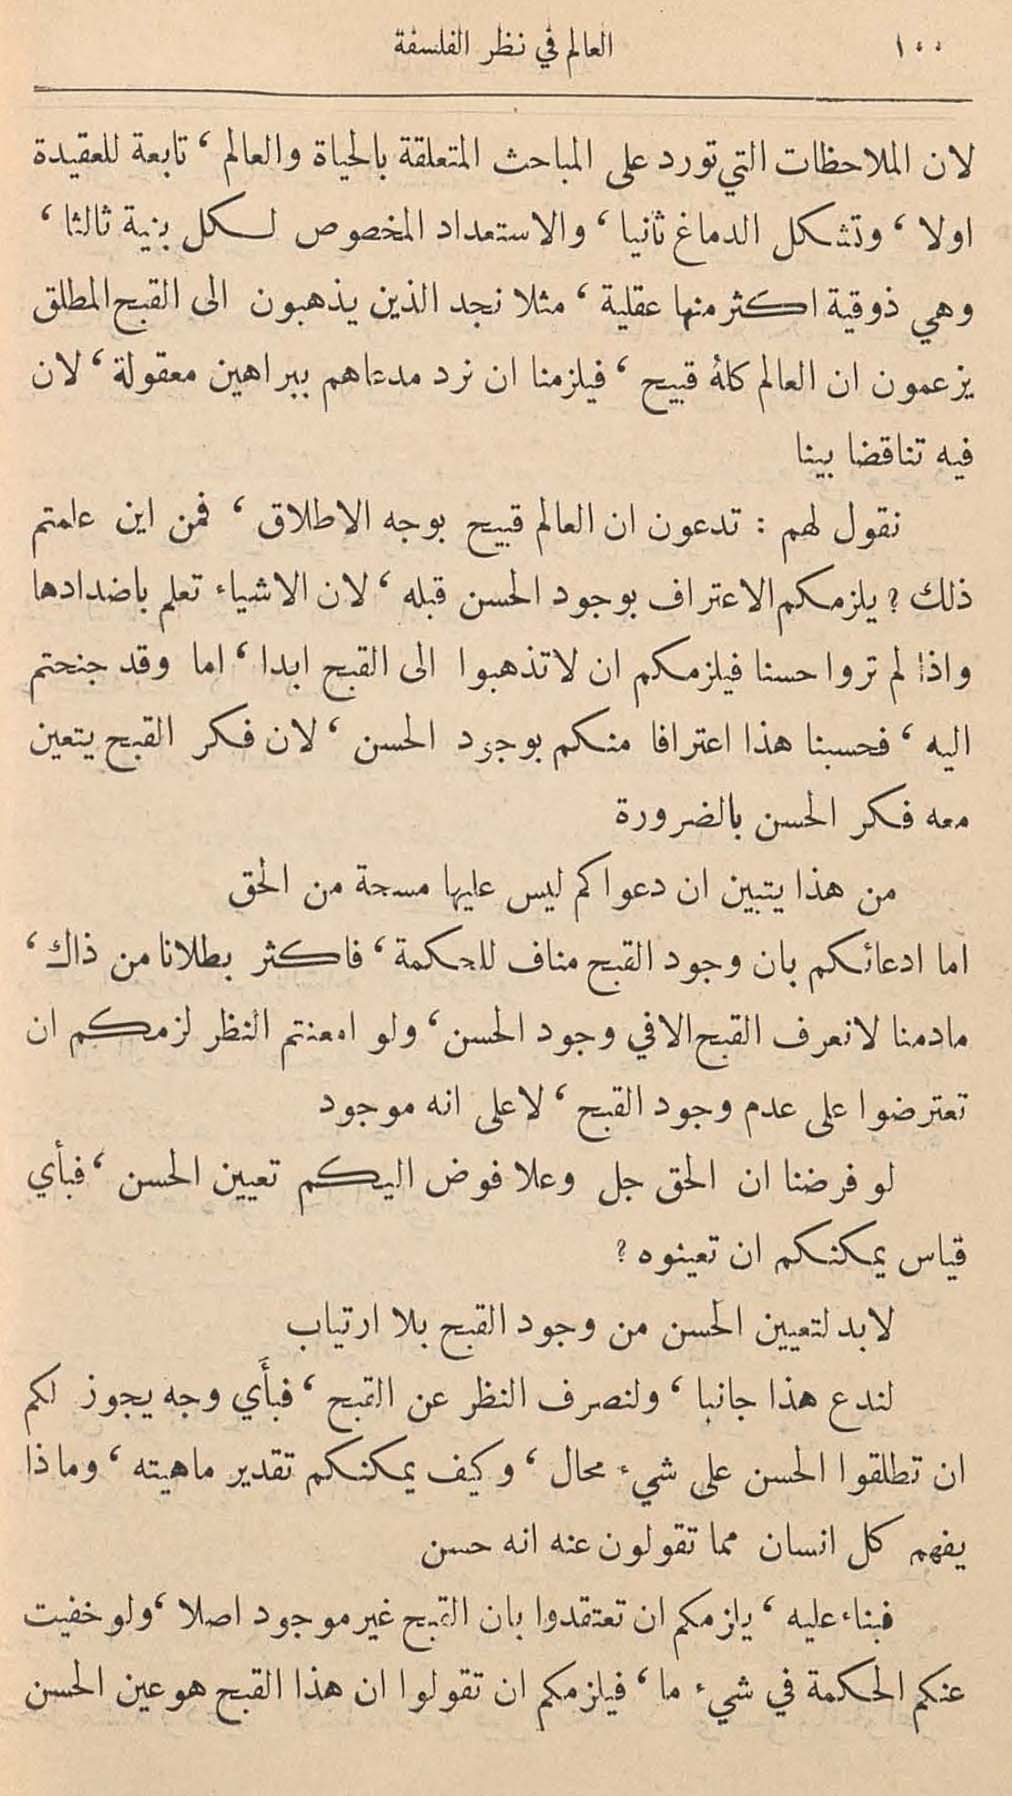 ١٠٠ العالم في نظر الفلسفة
لان الملاحظات التي تورد على المباحث المتعلقة بالحياة والعالم ، تابعة للعقيدة
اولا ، وتشكل الدماغ ثانيا ، والاستعداد المخصوص لكل بنية ثالثا ،
وهي ذوقية اكثر منها عقلية ، مثلا نجد الذين يذهبون الى القبح المطلق
يزعمون ان العالم كلهُ قبيح ، فيلزمنا ان نرد مدعاهم ببراهين معقولة ، لان
فيه تناقضا بينا
نقول لهم : تدعون ان العالم قبيح بوجه الاطلاق ، فمن اين علمتم
ذلك ؟ يلزمكم الاعتراف بوجود الحسن قبله ، لان الاشياء تعلم باضدادها
واذا لم تروا حسنا فيلزمكم ان لا تذهبوا الى القبح ابدا ، اما وقد جنحتم
اليه ، فحسبنا هذا اعترافا منكم بوجود الحسن ، لان فكر القبح يتعين
معه فكر الحسن بالضرورة
من هذا يتبين ان دعواكم ليس عليها مسحة من الحق
اما ادعائكم بان وجود القبح مناف للحكمة ، فاكثر بطلانا من ذاك ،
مادمنا لا نعرف القبح الا في وجود الحسن ، ولو امعنتم النظر لزمكم ان
تعترضوا على عدم وجود القبح ، لا على انه موجود
لو فرضنا ان الحق جل وعلا فوض اليكم تعيين الحسن ، فبأي
قياس يمكنكم ان تعينوه ؟
لا بد لتعيين الحسن من وجود القبح بلا ارتياب
لندع هذا جانبا ، ولنصرف النظر عن القبح ، فبأَي وجه يجوز لكم
ان تطلقوا الحسن على شيء محال ، وكيف يمكنكم تقدير ماهيته ، وماذا
يفهم كل انسان مما تقولون عنه انه حسن
فبناء عليه ، يلزمكم ان تعتقدوا بان القبح غير موجود اصلا ، ولو خفيت
عنكم الحكمة في شيء ما ، فيلزمكم ان تقولوا ان هذا القبح هو عين الحسن